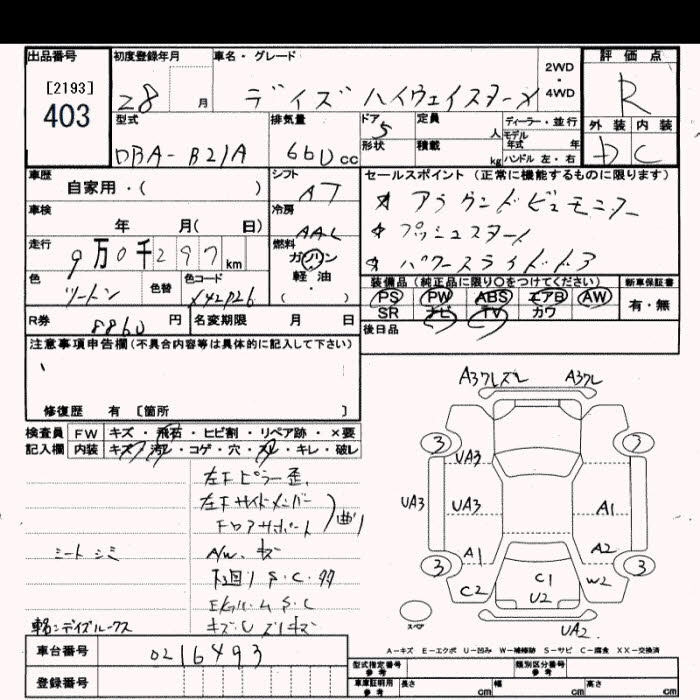 出品番号 初度登録年月 車名・グレード 2WD・4WD 評価点
[2193]
403
28 月 デイズ ハイウェイスターX R
型式 排気量 ドア 定員 ディーラー・並行 外装 内装
DBA-B21A 660cc 5 人 モデル年式 年 D C
形状 積載 kg ハンドル 左・右
車歴 シフト セールスポイント (正常に機能するものに限ります)
自家用・( ) AT ☆ アラウンドビューモニター
車検 冷房 ☆ プッシュスタート
年 月( 日) AAC ☆ パワースライドドア
走行 燃料
9万0千297km ガソリン
軽油・( )
色 色替 色コード 装備品(純正品に限り○をつけてください) 新車保証書
ツートン XY2P26 PS PW ABS エアB AW 有・無
SR ナビ TV カワ
R券 8860円 名変期限 月 日 後日品
注意事項申告欄(不具合内容等は具体的に記入して下さい)
修復歴 有 [箇所 ]
検査員 FW キズ・飛石・ヒビ割・リペア跡・×要
記入欄 内装 キズ・汚レ・コゲ・穴・スレ・キレ・破レ
左Fピラー歪、
左Fサイドメンバー
フロアサポート 曲り
シートシミ A/W、キズ
下回りS・C・
EルームS・C
車名:デイズルークス キズ・U スリキズ
A3フレズレ A3フレ
3 3
UA3
UA3 UA3 A1
A1 A2
3 3
C2 C1 W2
U2
スペア UA2
A-キズ E-エクボ U-凹み W-補修跡 S-サビ C-腐食 XX-交換済
車台番号 0216493
登録番号
型式指定番号参考 類別区分番号参考
車庫証明用参考 長さ cm 幅 cm 高さ cm